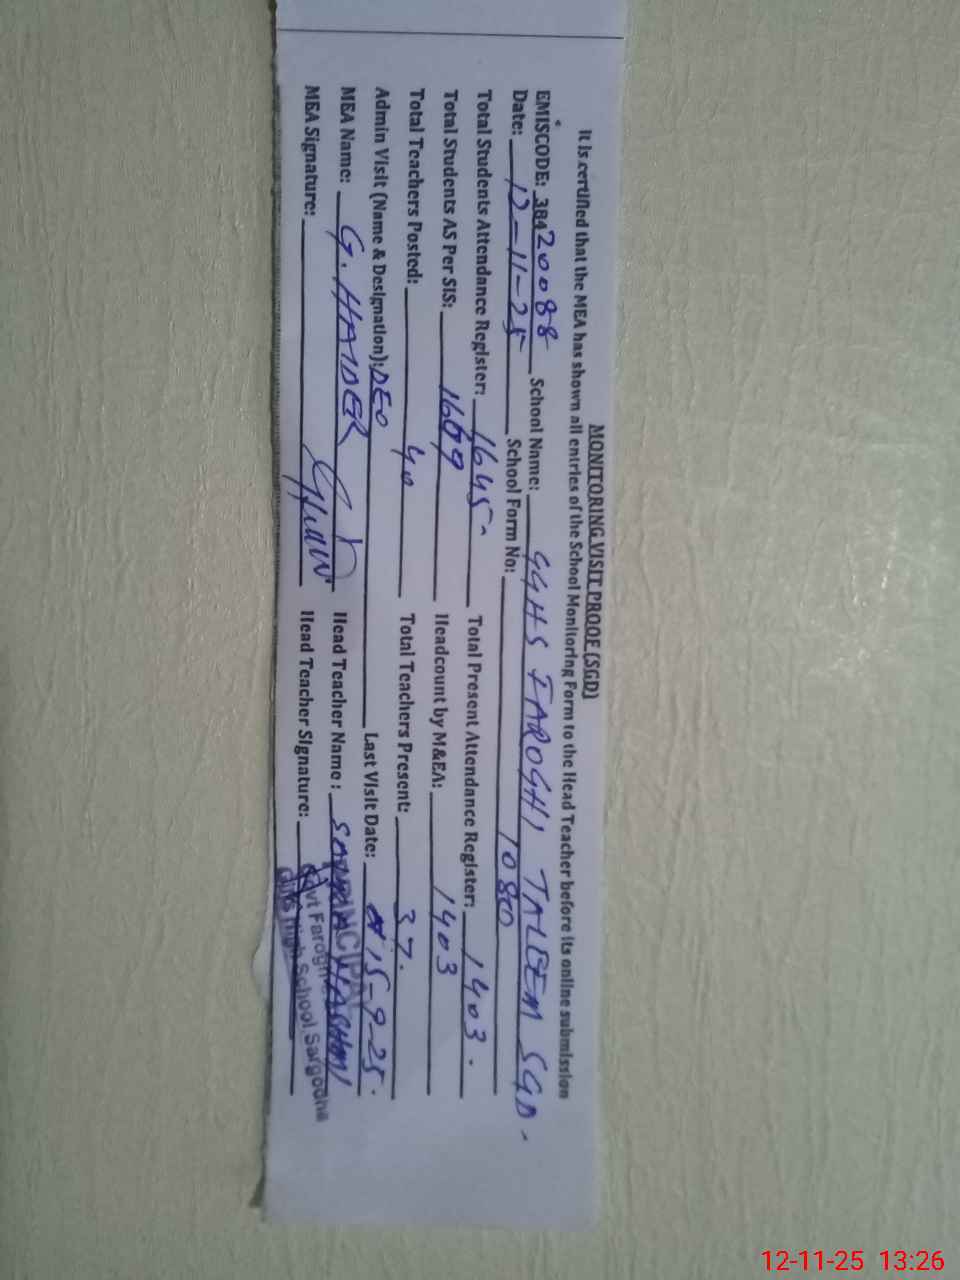 MONITORING VISIT PROOF (SGD)
It is certified that the MEA has shown all entries of the School Monitoring Form to the Head Teacher before its online submission
EMISCODE: 38420088 School Name: GGHS FAROGHI TALEEM SGD.
Date: 12-11-25 School Form No: 1080
Total Students Attendance Register: 1645 Total Present Attendance Register: 1403.
Total Students AS Per SIS: 1609 Headcount by M&EA: 1403
Total Teachers Posted: 40 Total Teachers Present: 37.
Admin Visit (Name & Designation): DEO Last Visit Date: 15-9-25.
MEA Name: G. HAIDER Head Teacher Name:
MEA Signature: Head Teacher Signature:
PRINCIPAL
Govt Farogh-e
Girls High School Sargodha
12-11-25 13:26